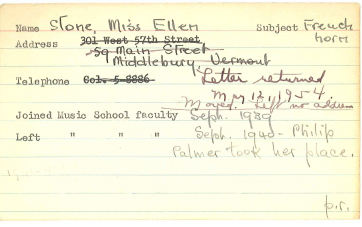 Name Stone, Miss Ellen Subject French horn
Address 301 West 57th Street
59 Main Street
Middlebury, Vermont
Letter returned
Telephone Col. 5-8886
May 12, 1954.
Moved. Left no address
Joined Music School faculty Sept. 1939
Left " " " Sept. 1940 - Philip
Palmer took her place.
p.r.